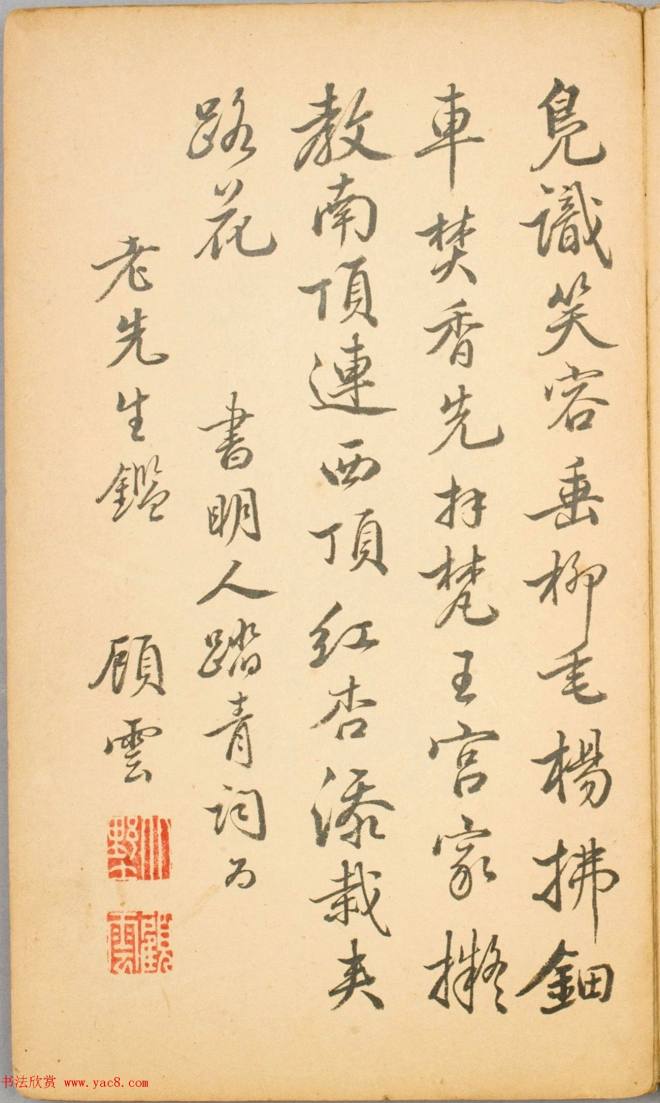 識笑容垂柳毛楊拂鈿
車焚香先拜梵王宮家擬
教南頂連西頂紅杏添栽夾
路花
書明人踏青詞為
老先生鑑 顾雲
顧雲
书法欣赏 www.yac8.com